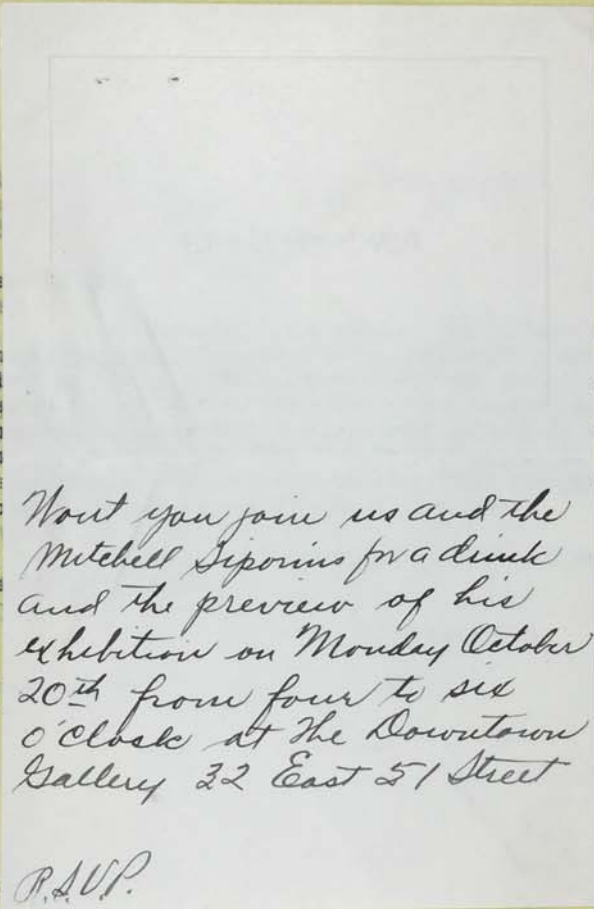 Wont you join us and the
Mitchell Siporins for a drink
and the preview of his
exhibition on Monday October
20th from four to six
o'clock at The Downtown
Gallery 32 East 51 Street
R.S.V.P.